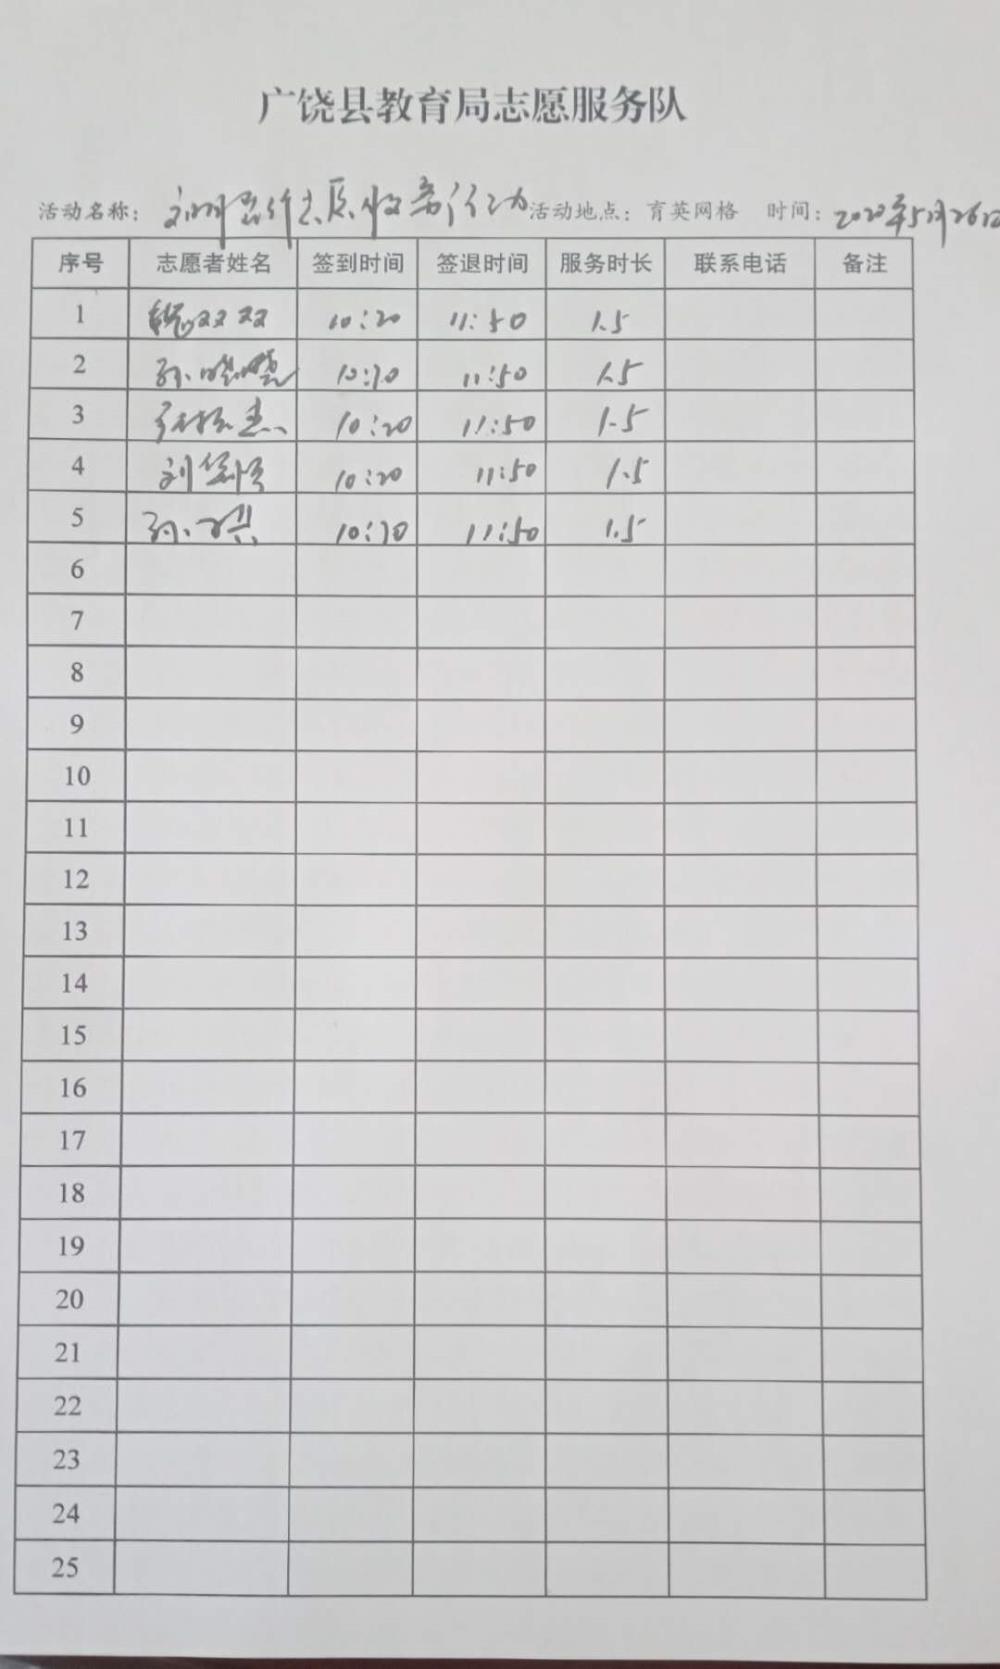 广饶县教育局志愿服务队
活动名称： 文明 志愿服务行动 活动地点：育英网格 时间：2022年5月26日
序号 志愿者姓名 签到时间 签退时间 服务时长 联系电话 备注
1 魏双双 10:20 11:50 1.5
2 孙晓晓 10:20 11:50 1.5
3 杰 10:20 11:50 1.5
4 刘 10:20 11:50 1.5
5 孙 10:20 11:50 1.5
6
7
8
9
10
11
12
13
14
15
16
17
18
19
20
21
22
23
24
25